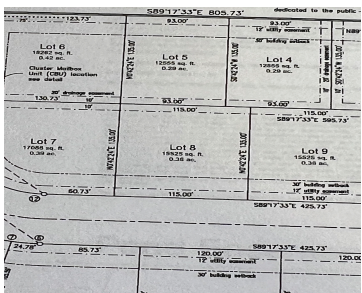 S89°17'33"E 805.73'
dedicated to the public
75'
123.73'
93.00'
93.00'
12' utility easement
30' building setback
Lot 6
18282 sq. ft.
0.42 ac.
Cluster Mailbox
Unit (CBU) location
see detail
Lot 5
12555 sq. ft.
0.29 ac.
Lot 4
12555 sq. ft.
0.29 ac.
20' drainage easement
130.73'
10'
10'
93.00'
93.00'
115.00'
115.00'
S89°17'33"E 595.73'
Lot 7
17088 sq. ft.
0.39 ac.
Lot 8
15525 sq. ft.
0.36 ac.
Lot 9
15525 sq. ft.
0.36 ac.
30' building setback
12' utility easement
60.73'
115.00'
115.00'
12
S89°17'33"E 425.73'
7
6
24.78'
85.73'
S89°17'33"E 425.73'
120.00'
120.00
12' utility easement
30' building setback